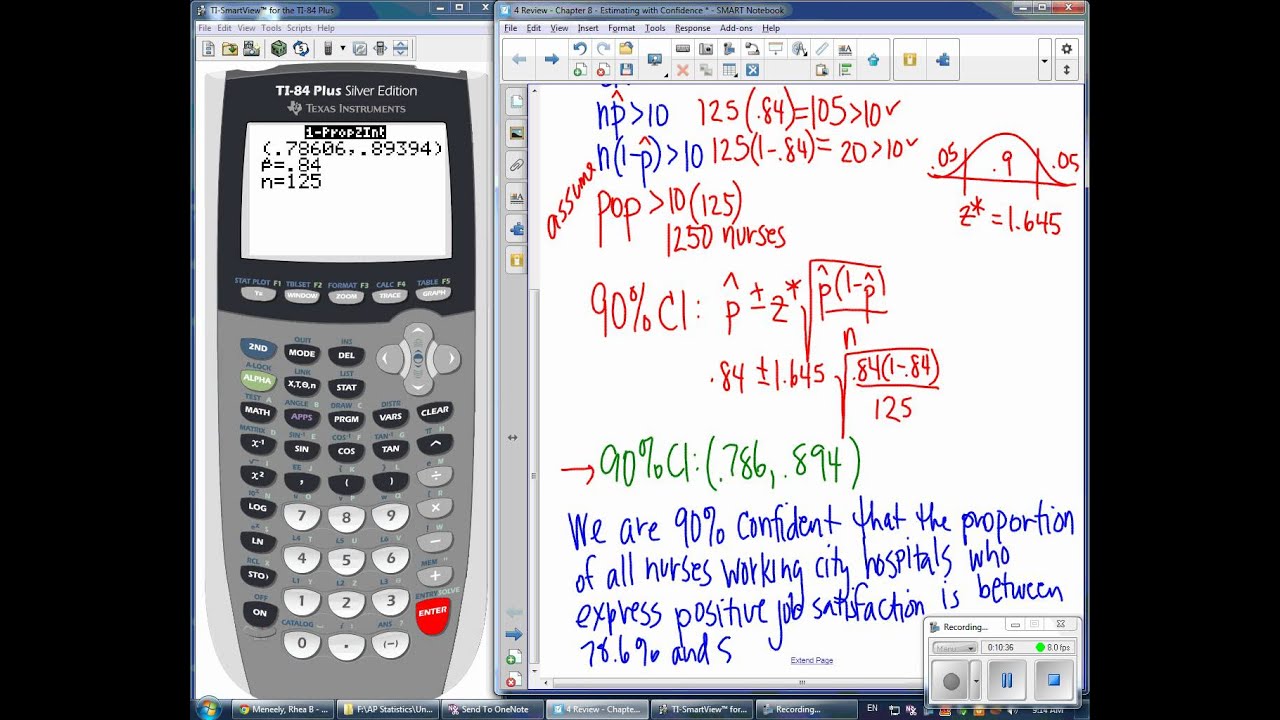 TI-SmartView™ for the TI-84 Plus
File Edit View Tools Scripts Help
TI-84 Plus Silver Edition
TEXAS INSTRUMENTS
1-PropZInt
(.78606,.89394)
p̂=.84
n=125
STAT PLOT F1 TBLSET F2 FORMAT F3 CALC F4 TABLE F5
Y= WINDOW ZOOM TRACE GRAPH
QUIT INS
2ND MODE DEL
A-LOCK LINK LIST
ALPHA X,T,Θ,n STAT
TEST A ANGLE B DRAW C DISTR
MATH APPS PRGM VARS CLEAR
MATRIX D SIN⁻¹ E COS⁻¹ F TAN⁻¹ G π H
X⁻¹ SIN COS TAN ^
X² , ( ) ÷
LOG 7 8 9 ×
LN 4 5 6 −
RCL X L1 Y L2 Z L3 θ MEM "
STO› 1 2 3 +
OFF CATALOG i : ANS ? ENTRY SOLVE
ON 0 . (−) ENTER
4 Review - Chapter 8 - Estimating with Confidence * - SMART Notebook
File Edit View Insert Format Tools Response Add-ons Help
np̂>10 125(.84)=105>10✓
n(1-p̂)>10 125(1-.84)= 20>10✓
.05 .9 .05
z* = 1.645
assume
pop >10(125)
1250 nurses
90% CI: p̂ ± z* √p̂(1-p̂)
n
.84 ± 1.645 √.84(1-.84)
125
→ 90% CI: (.786, .894)
We are 90% confident that the proportion
of all nurses working city hospitals who
express positive job satisfaction is between
78.6% and s
Extend Page
Recording...
Menu 0:10:36 8.0 fps
Meneely, Rhea B - F:\AP Statistics\Un... Send To OneNote 4 Review - Chapte... TI-SmartView™ for... Recording... EN 9:14 AM